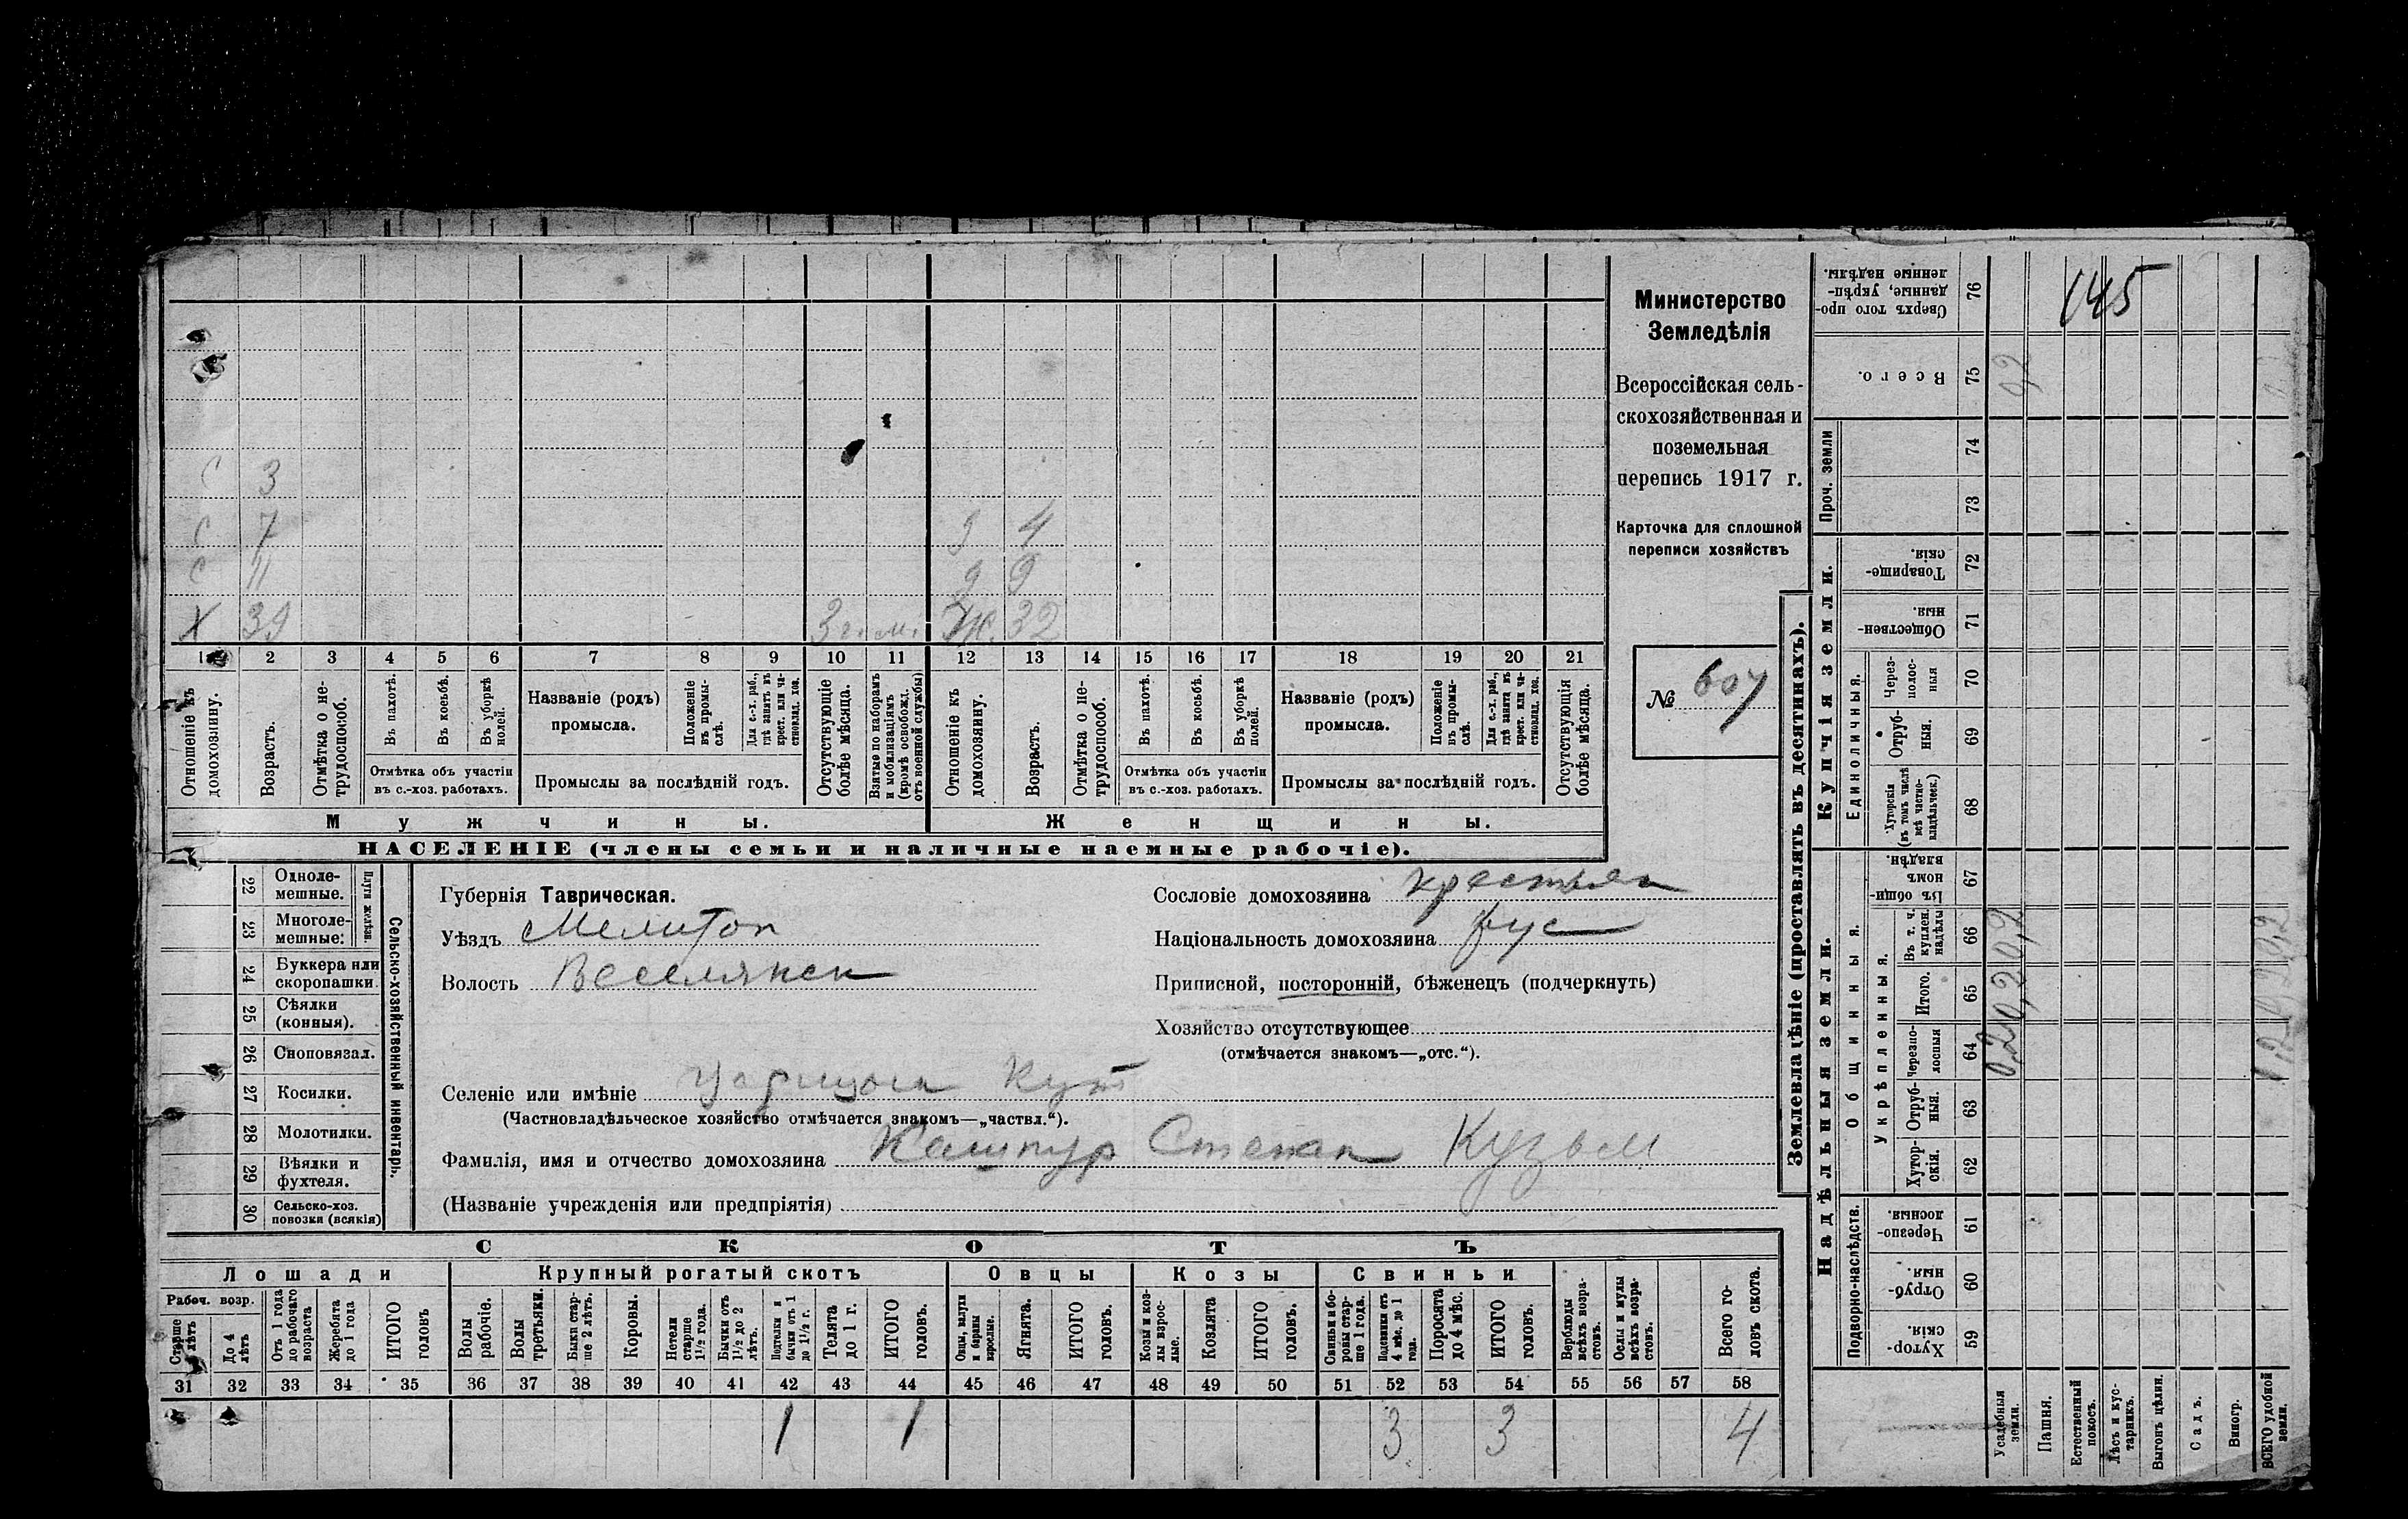 145
Министерство
Земледѣлія
Всероссійская сель-
скохозяйственная и
поземельная
перепись 1917 г.
Карточка для сплошной
переписи хозяйствъ
№ 607
С 3
С 7 д 4
С 11 д 9
Х 39 Ж. 32
1 2 3 4 5 6 7 8 9 10 11 12 13 14 15 16 17 18 19 20 21
Отношеніе къ домохозяину.
Возрастъ.
Отмѣтка о не-трудоспособ.
Въ пахотѣ.
Въ косьбѣ.
Въ уборкѣ полей.
Отмѣтка объ участіи
въ с.-хоз. работахъ.
Названіе (родъ)
промысла.
Положеніе въ промы-слѣ.
Для с.-х. раб., гдѣ занятъ въ крест. или ча-стновлад. хоз.
Промыслы за послѣдній годъ.
Отсутствующіе болѣе мѣсяца.
Взятые по наборамъ и мобилизаціямъ (кромѣ освобожд. отъ военной службы)
Отношеніе къ домохозяину.
Возрастъ.
Отмѣтка о не-трудоспособ.
Въ пахотѣ.
Въ косьбѣ.
Въ уборкѣ полей.
Отмѣтка объ участіи
въ с.-хоз. работахъ.
Названіе (родъ)
промысла.
Положеніе въ промы-слѣ.
Для с.-х. раб., гдѣ занята въ крест. или ча-стновлад. хоз.
Промыслы за послѣдній годъ.
Отсутствующія болѣе мѣсяца.
Мужчины. Женщины.
НАСЕЛЕНІЕ (члены семьи и наличные наемные рабочіе).
Сельско-хозяйственный инвентарь.
Плуги желѣзн.
22 Одноле-мешные.
23 Многоле-мешные:
24 Буккера или скоропашки.
25 Сѣялки (конныя).
26 Сноповязал.
27 Косилки.
28 Молотилки.
29 Вѣялки и фухтеля.
30 Сельско-хоз. повозки (всякія)
Губернія Таврическая.
Уѣздъ Мелитоп
Волость Веселянск
Селеніе или имѣніе Царицын Кут
(Частновладѣльческое хозяйство отмѣчается знакомъ—„частвл.“).
Фамилія, имя и отчество домохозяина Кашпур Степан Кузьм
(Названіе учрежденія или предпріятія)
Сословіе домохозяина крестьян
Національность домохозяина рус
Приписной, посторонній, бѣженецъ (подчеркнуть)
Хозяйство отсутствующее
(отмѣчается знакомъ—„отс.“).
СКОТЪ
Лошади Крупный рогатый скотъ Овцы Козы Свиньи
Рабоч. возр.
Старше 4 лѣтъ
До 4 лѣтъ
Отъ 1 года до рабочаго возраста
Жеребята до 1 года
ИТОГО головъ
Волы рабочіе.
Волы третьяки.
Быки стар-ше 2 лѣтъ.
Коровы.
Нетели старше 1½ года.
Бычки отъ 1½ до 2 лѣтъ.
Подтелки и бычки отъ 1 до 1½ г.
Телята до 1 г.
ИТОГО головъ.
Овцы, валухи и бараны взрослые.
Ягнята.
ИТОГО головъ.
Козы и коз-лы взрос-лые.
Козлята
ИТОГО головъ.
Свиньи и бо-ровы стар-ше 1 года.
Подсвинки отъ 4 мѣс. до 1 года.
Поросята до 4 мѣс.
ИТОГО головъ.
Верблюды всѣхъ возра-стовъ.
Ослы и мулы всѣхъ возра-стовъ.
Всего го-ловъ скота.
31 32 33 34 35 36 37 38 39 40 41 42 43 44 45 46 47 48 49 50 51 52 53 54 55 56 57 58
1 1 3 3 4
Землевладѣніе (проставлять въ десятинахъ).
Купчія земли.
Надѣльныя земли.
76 Сверхъ того про-данные, укрѣп-ленные надѣлы.
75 Всего. 0,2
Проч. земли
74
73
72 Товарище-скія.
71 Обществен-ныя
Единоличныя.
70 Через-полос-ныя
69 Отруб-ныя.
68 Хуторскія (въ томъ числѣ всѣ частно-владѣльческ.)
Общинныя.
67 Въ общи-номъ владѣн.
Укрѣпленныя.
66 Въ т. ч. куплен. надѣлы 0,2
65 Итого. 0,2
64 Черезпо-лосныя 0,2
63 Отруб-ныя.
62 Хутор-скія.
Подворно-наслѣдств.
61 Черезпо-лосныя.
60 Отруб-ныя.
59 Хутор-скія.
Усадебныя земли.
Пашня.
Естественный покосъ.
Лѣсъ и кус-тарникъ.
Выгонъ цѣлин.
Садъ.
Виногр.
ВСЕГО удобной земли.